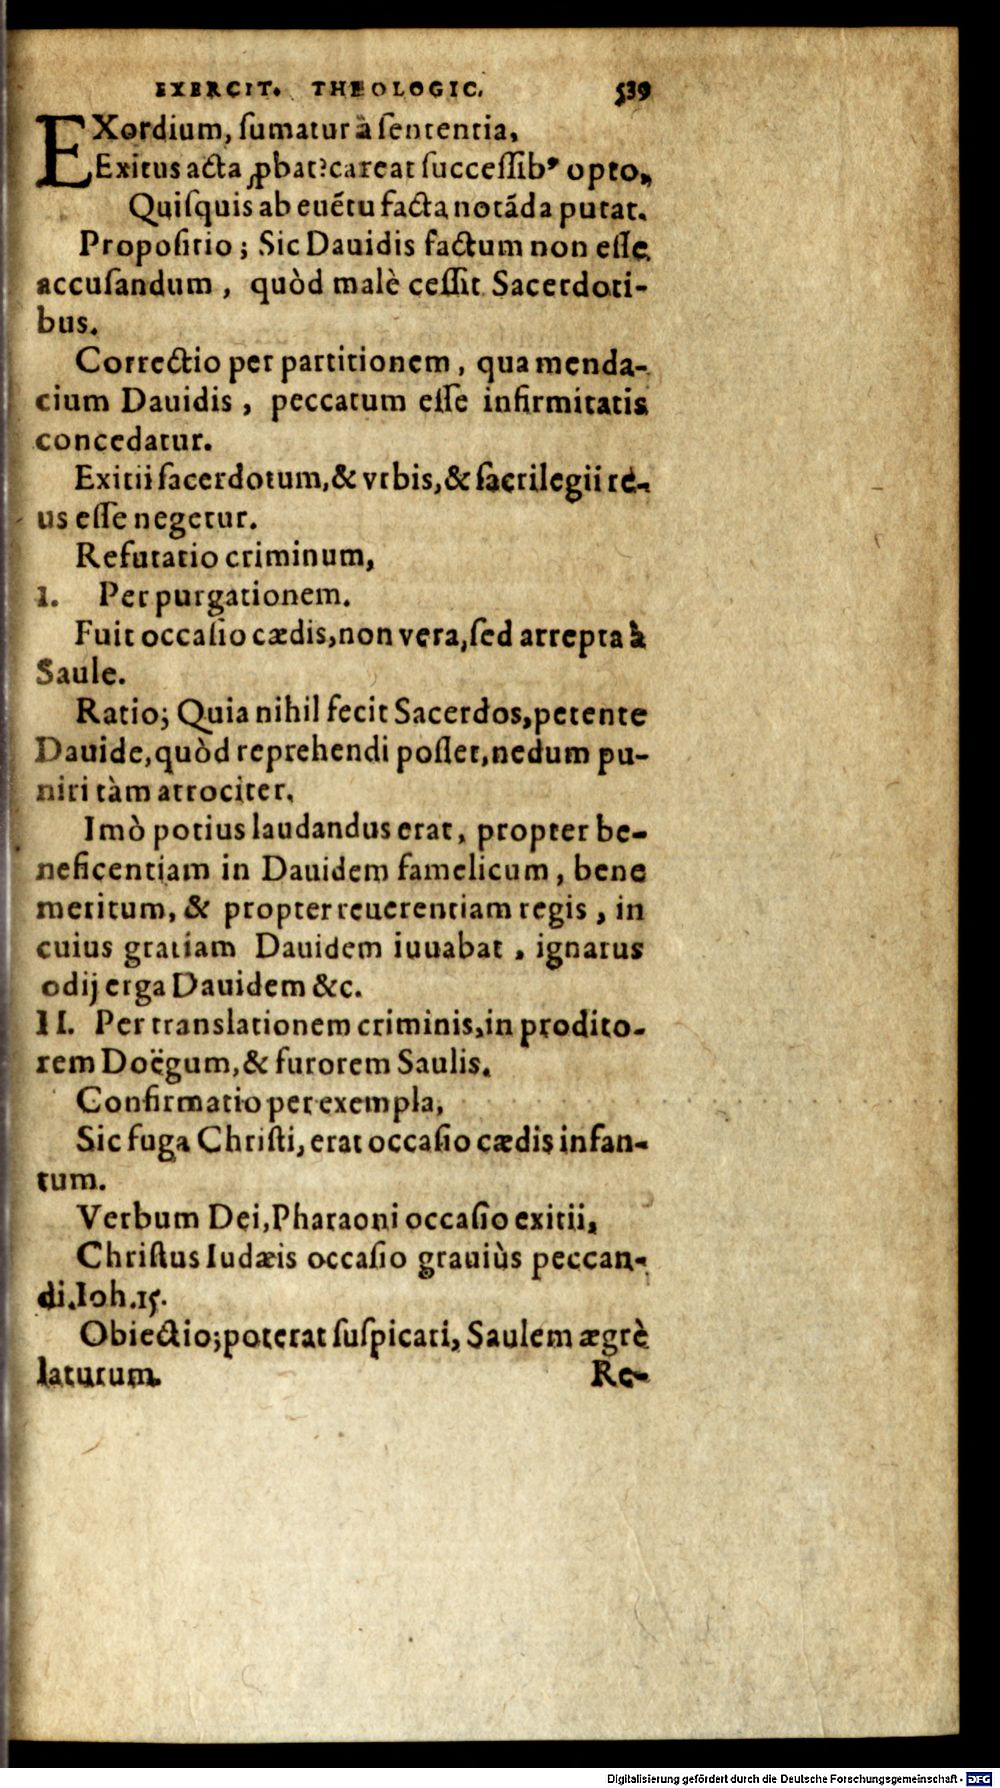 EXERCIT. THEOLOGIC. 539
EXordium, ſumatur à ſententia,
Exitus acta ꝓbat? careat ſucceſſibꝰ opto,
Quiſquis ab euẽtu facta notãda putat.
Propoſitio; Sic Dauidis factum non eſſe
accuſandum, quòd malè ceſſit Sacerdoti-
bus.
Correctio per partitionem, qua menda-
cium Dauidis, peccatum eſſe infirmitatis
concedatur.
Exitii ſacerdotum, & vrbis, & ſacrilegii re-
us eſſe negetur.
Refutatio criminum,
I. Per purgationem.
Fuit occaſio cædis, non vera, ſed arrepta à
Saule.
Ratio; Quia nihil fecit Sacerdos, petente
Dauide, quòd reprehendi poſſet, nedum pu-
niri tàm atrociter.
Imò potius laudandus erat, propter be-
neficentiam in Dauidem famelicum, bene
meritum, & propter reuerentiam regis, in
cuius gratiam Dauidem iuuabat, ignarus
odij erga Dauidem &c.
II. Per translationem criminis, in prodito-
rem Doëgum, & furorem Saulis.
Confirmatio per exempla,
Sic fuga Chriſti, erat occaſio cædis infan-
tum.
Verbum Dei, Pharaoni occaſio exitii,
Chriſtus Iudæis occaſio grauiùs peccan-
di. Ioh. 15.
Obiectio; poterat ſuſpicari, Saulem ægrè
laturum. Re-
Digitalisierung gefördert durch die Deutsche Forschungsgemeinschaft - DFG